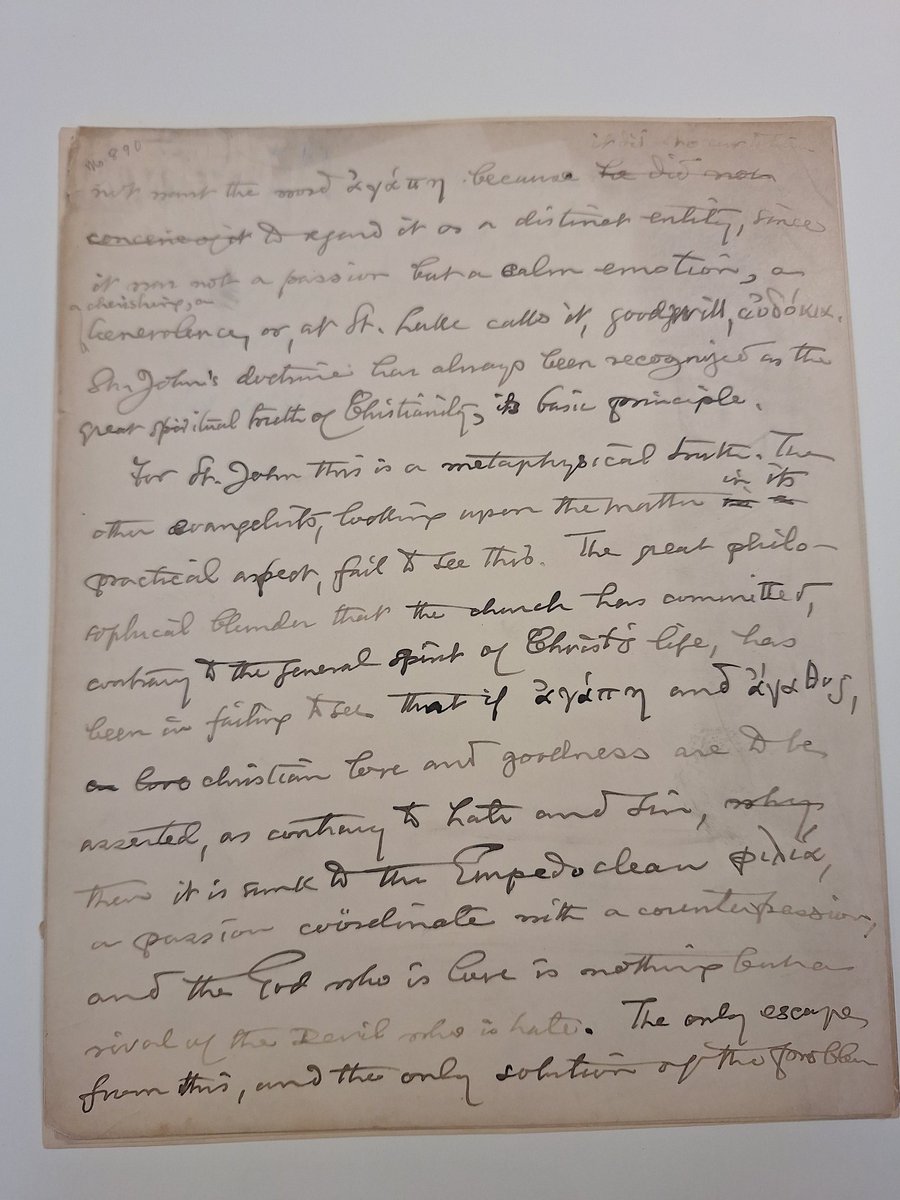 Ms. 890
it did
not want the word ἀγάπη because he did not
conceive of it to regard it as a distinct entity, since
it was not a passion but a calm emotion, a
a cherishing, a
benevolence, or, at St. Luke calls it, goodwill, ἐυδόκια.
St. John's doctrine has always been recognized as the
great spiritual truth of Christianity, its basic principle.
For St. John this is a metaphysical truth. The
in its
other evangelists, looking upon the matter in its
practical aspect, fail to see this. The great philo-
sophical blunder that the church has committed,
contrary to the general spirit of Christ's life, has
been in failing to see that if ἀγάπη and ἀγαθος,
or love christian love and goodness are to be
asserted, as contrary to hate and sin, why
then it is sunk to the Empedoclean φιλία,
a passion coördinate with a counterpassion,
and the God who is love is nothing but a
rival of the Devil who is hate. The only escape
from this, and the only solution of the problem